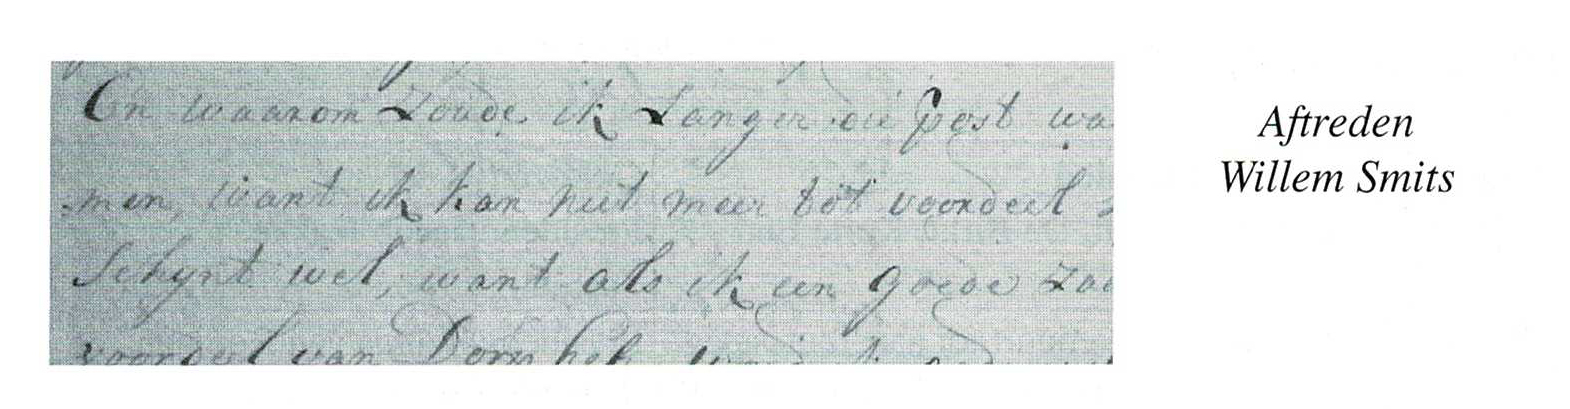 En waarom zoude ik Langer die post wa
men, want ik kan niet meer tot voordeel
Schynt wel, want als ik een goede zaa
voordeel van Dorp heb
Aftreden
Willem Smits